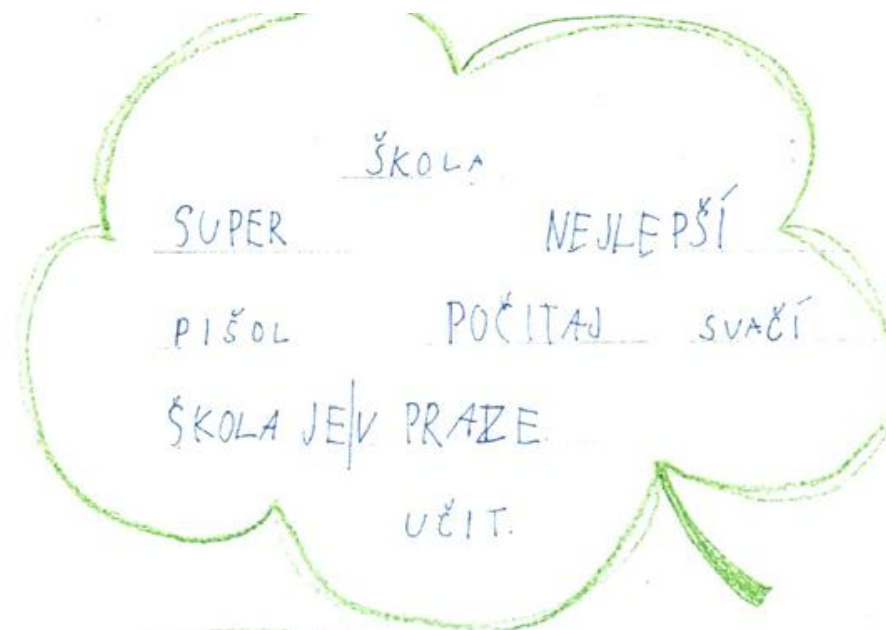 ŠKOLA
SUPER NEJLEPŠÍ
PIŠOL POČITAJ SVAČÍ
ŠKOLA JE|V PRAZE.
UČIT.